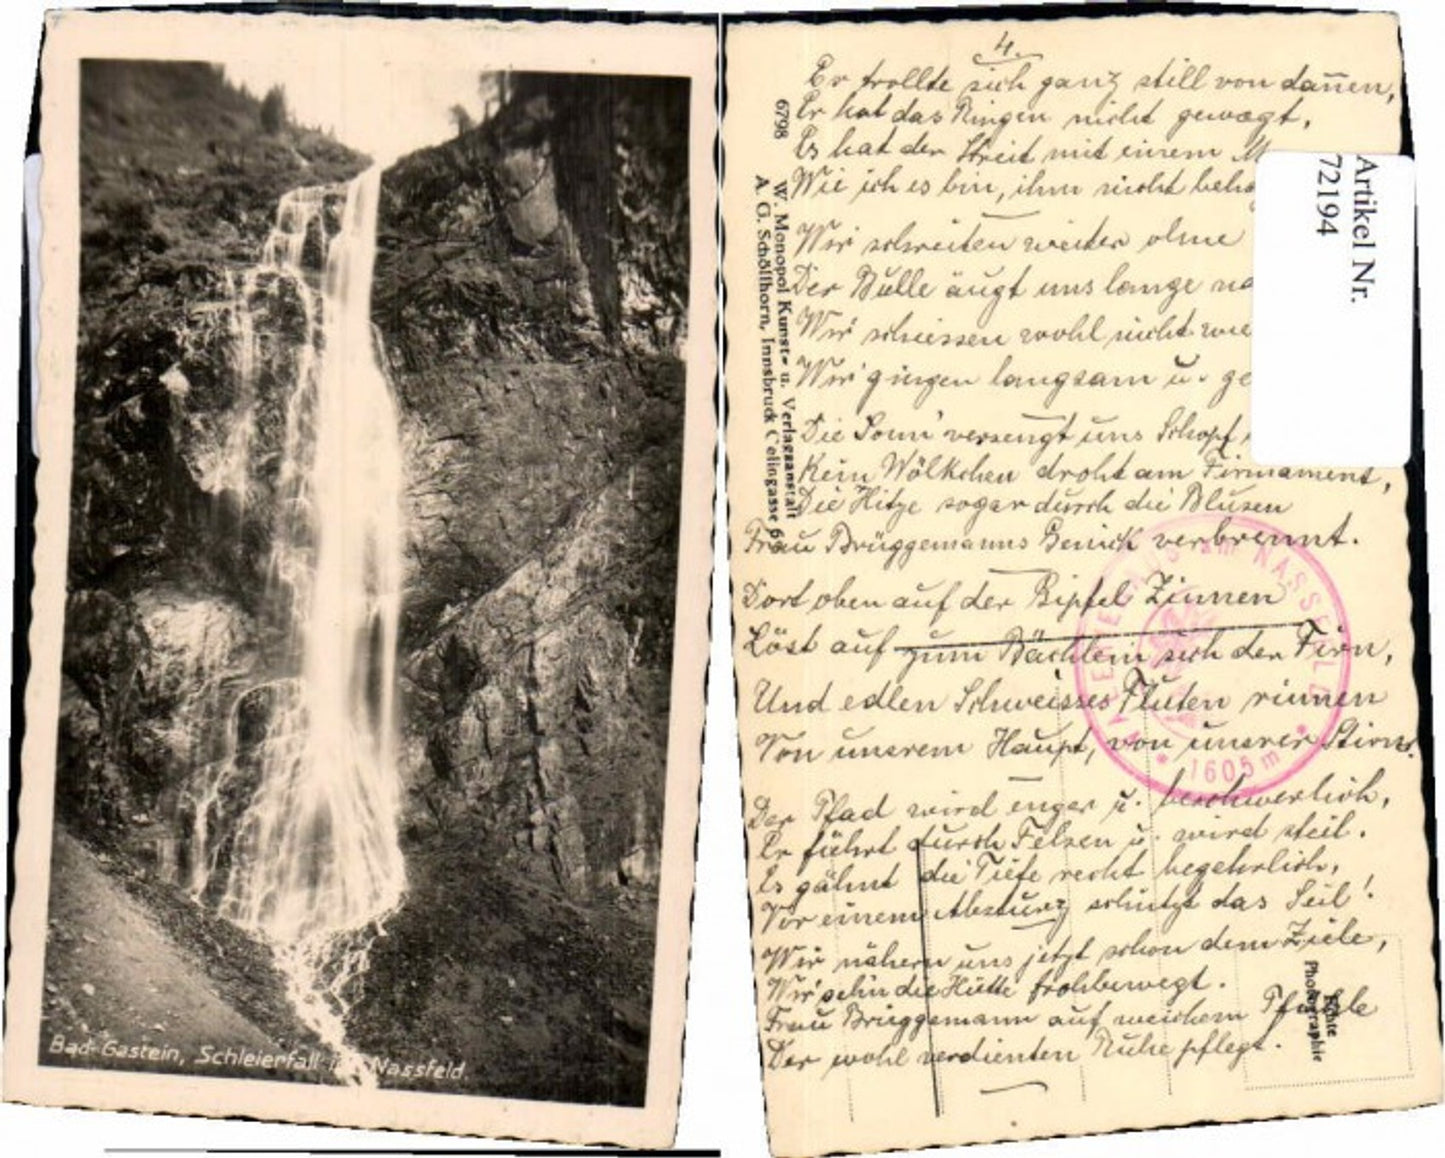 Bad-Gastein, Schleierfall Nassfeld.
4.
Er trollte sich ganz still von dannen,
Er hat das Ringen nicht gewagt,
Es hat der Streit mit einem
Wie ich es bin, ihm nicht
Wir schreiten weiter ohne
Der Bulle äugt uns lange
Wir schiessen wohl nicht
Wir gingen langsam u.
Die Sonn' versengt uns Schopf
Kein Wölkchen droht am Firmament,
Die Hitze sogar durch die Blusen
Frau Brüggemanns Genick verbrennt.
Dort oben auf der Gipfel Zinnen
Löst auf zum Bächlein sich der Firn,
Und edlen Schweisses Fluten rinnen
Von unserem Haupt, von unsrer Stirn.
Der Pfad wird enger u. beschwerlich,
Er führt durch Felsen u. wird steil.
Es gähnt die Tiefe recht begehrlich,
Vor einem Absturz schützt das Seil!
Wir nähern uns jetzt schon dem Ziele,
Wir sehn die Hütte frohbewegt.
Frau Brüggemann auf weichem Pfühle
Der wohl verdienten Ruhe pflegt.
6798
W. Monopol Kunst- u. Verlagsanstalt
A. G. Schöllhorn, Innsbruck
Artikel Nr.
72194
am NASSFELD
* 1605 m *
Echte
Photographie